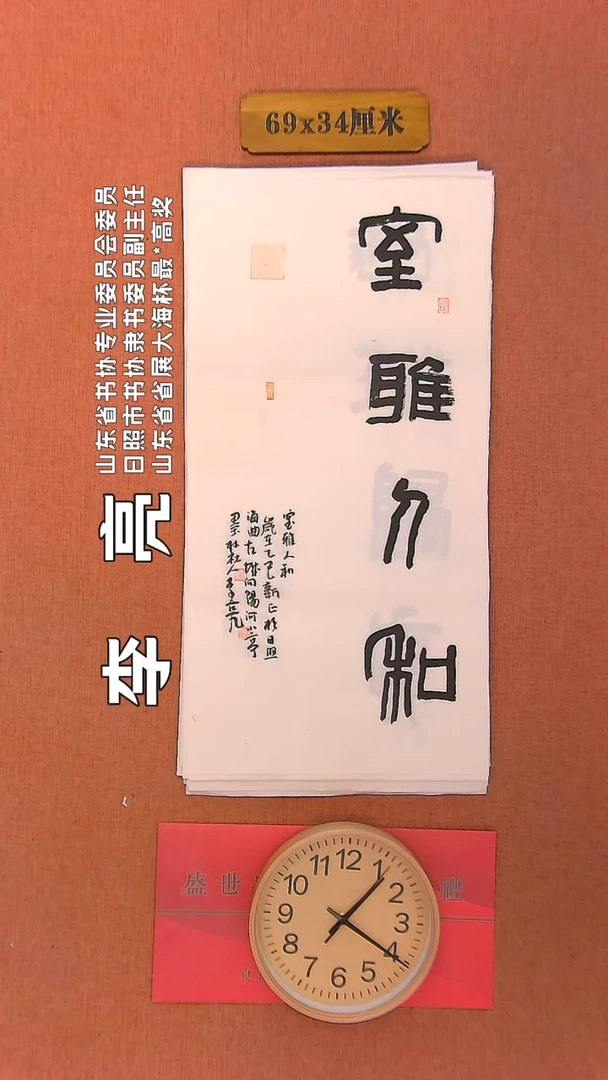 69x34厘米
山东省书协专业委员会委员
日照市书协隶书委员副主任
山东省省展大海杯最*高奖
李亮
室雅人和
室雅人和
歲在乙巳新正於日照
海曲古城向陽河小亭
盛世 禮
12
1
2
3
4
5
6
7
8
9
10
11